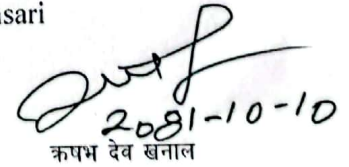 nsari
2081-10-10
ऋषभ देव खनाल